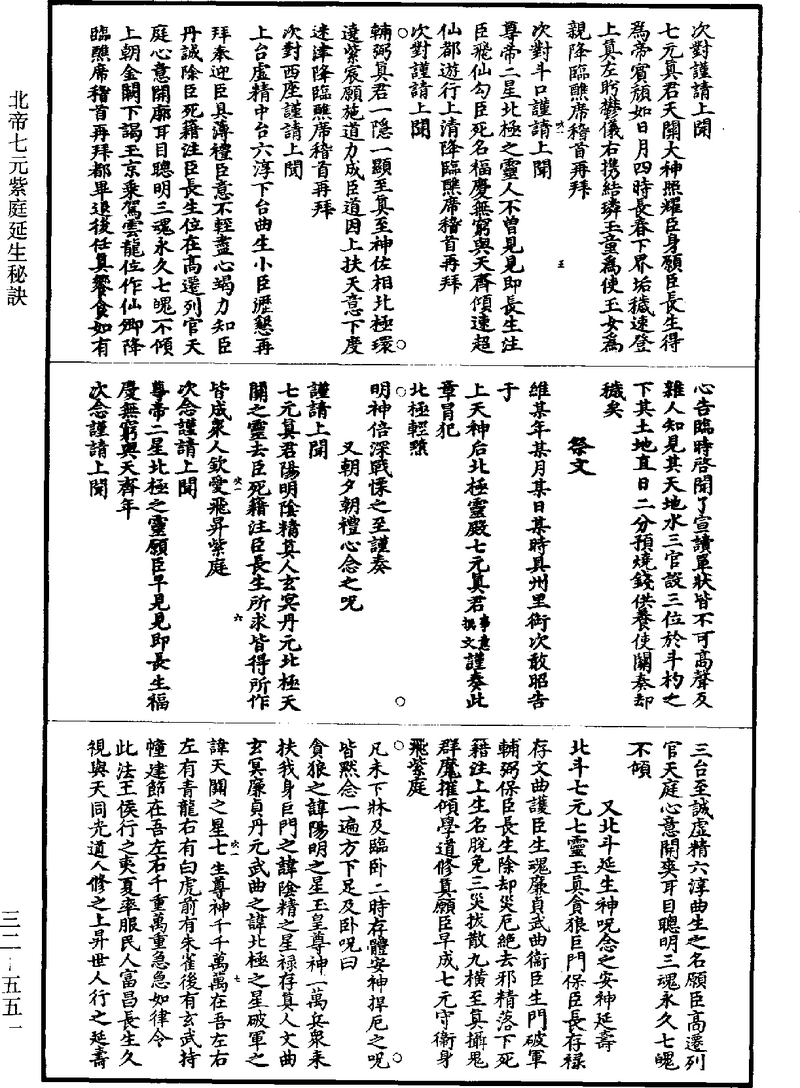 北帝七元紫庭延生秘訣
次對謹請上聞
七元真君天關大神照耀臣身願臣長生得
為帝賓顏如日月四時長春下界垢穢速登
上真左盻欝儀右携結璘玉童為使玉女為
親降臨醮席稽首再拜
次對斗口謹請上聞
尊帝二星北極之靈人不曾見見即長生注
臣飛仙勾臣死名福慶無窮與天齊傾速超
仙都遊行上清降臨醮席稽首再拜
次對謹請上聞
輔弼真君一隱一顯至真至神佐相北極環
遶紫宸願施道力成臣道因上扶天意下度
迷津降臨醮席稽首再拜
次對西座謹請上聞
上台虛精中台六淳下台曲生小臣瀝懇再
拜奉迎臣具薄禮臣意不輕盡心竭力知臣
丹誠除臣死籍注臣長生位在高遷列官天
庭心意開廓耳目聰明三魂永久七魄不傾
上朝金闕下謁玉京乘駕雲龍位作仙卿降
臨醮席稽首再拜都畢退後任真饗食如有
心告臨時啓聞了宣讀單狀皆不可高聲及
雜人知見其天地水三官設三位於斗杓之
下其土地直日二分預燒錢供養使關奏却
穢矣
祭文
維某年某月某日某時具州里銜次敢昭告
于
上天神后北極靈殿七元真君事意撰文謹奏此
章冐犯
北極輕黷
明神倍深戰慄之至謹奏
又朝夕朝禮心念之呪
謹請上聞
七元真君陽明陰精真人玄冥丹元北極天
關之靈去臣死籍注臣長生所求皆得所作
皆成衆人欽愛飛昇紫庭
次念謹請上聞
尊帝二星北極之靈願臣早見見即長生福
慶無窮與天齊年
次念謹請上聞
三台至誠虛精六淳曲生之名願臣高遷列
官天庭心意開爽耳目聰明三魂永久七魄
不傾
又北斗延生神呪念之安神延壽
北斗七元七靈玉真貪狼巨門保臣長存祿
存文曲護臣生魂廉貞武曲衞臣生門破軍
輔弼保臣長生除却災厄絕去邪精落下死
籍注上生名脫免三災拔散九橫至真攝鬼
群魔摧傾學道修真願臣早成七元守衞身
飛紫庭
凡未下牀及臨卧二時存體安神捍厄之呪
皆黙念一遍方下足及卧呪曰
貪狼之諱陽明之星玉皇尊神一萬兵衆來
扶我身巨門之諱陰精之星禄存真人文曲
玄冥廉貞丹元武曲之諱北極之星破軍之
諱天關之星七生尊神千千萬萬在吾左右
左有青龍右有白虎前有朱雀後有玄武持
幢建節在吾左右千重萬重急急如律令
此法王侯行之夷夏率服民人富昌長生久
視與天同光道人修之上昇世人行之延壽
三二－五五一